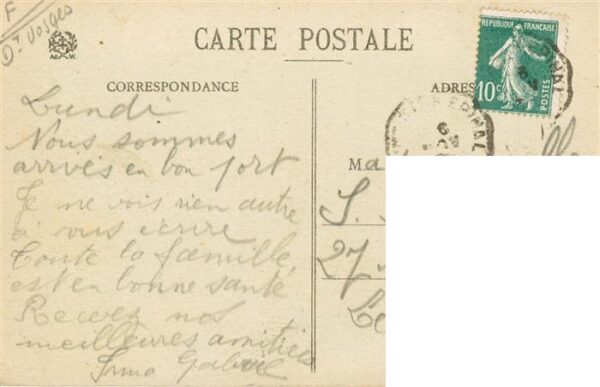 F
Dt Vosges
CARTE POSTALE
CORRESPONDANCE
ADRES
RÉPUBLIQUE FRANÇAISE
10c
POSTES
EPINAL
Lundi
Nous sommes
arrivés en bon port
Je ne vois rien autre
à vous écrire
Toute la famille
est en bonne santé
Recevez nos
meilleures amitiés
Irma Gabriel
Ma
S.
27